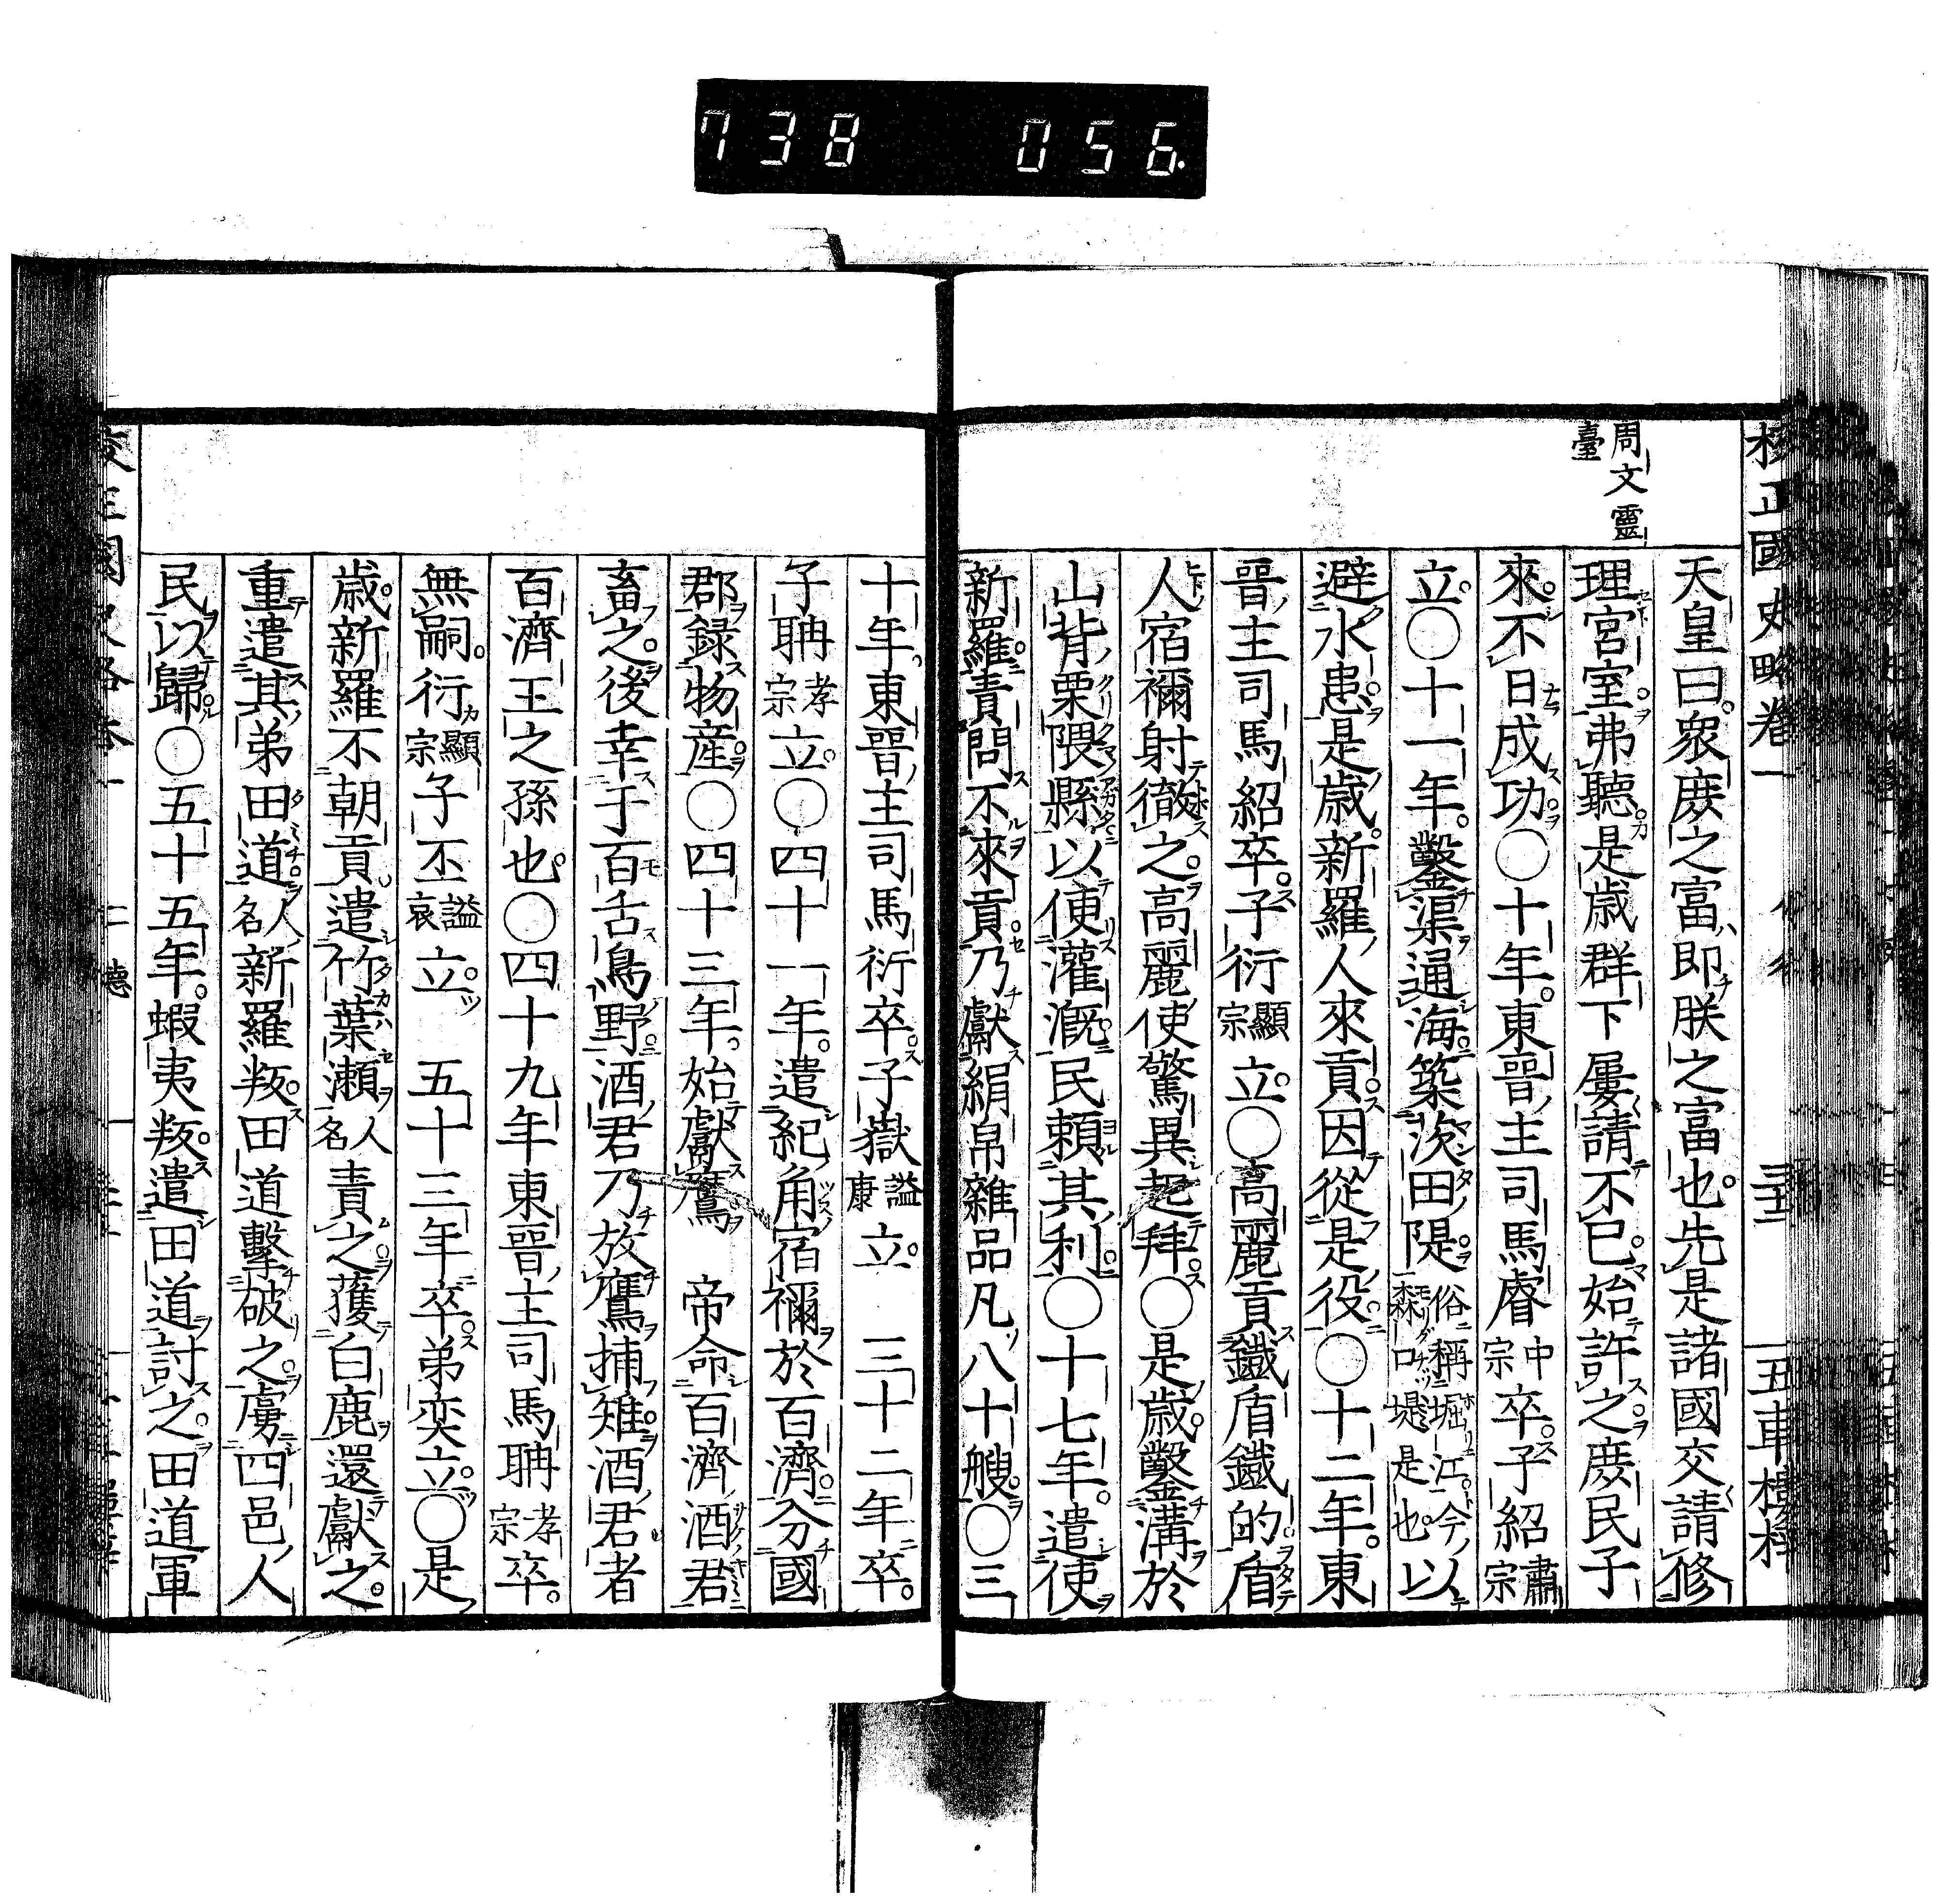 738 056.
校正國史略卷一
五車樓梓
周文靈
臺
天皇曰衆庶之富即朕之富也先是諸國交請修
理宮室弗聽是歳群下屢請不已始許之庶民子
來不日成功〇十年東晉主司馬睿中宗卒子紹肅宗
立〇十一年鑿渠通海築茨田隄俗稱堀江今森口堤是也以
避水患是歳新羅人來貢因從是役〇十二年東
晉主司馬紹卒子衍顯宗立〇高麗貢鐵盾鐵的盾
人宿禰射徹之高麗使驚異起拜〇是歳鑿溝於
山背栗隈縣以便灌漑民賴其利〇十七年遣使
新羅責問不來貢乃獻絹帛雜品凡八十艘〇三
十年東晉主司馬衍卒子嶽謚康立 三十二年卒
子聃孝宗立〇四十一年遣紀角宿禰於百濟分國
郡録物産〇四十三年始獻鷹 帝命百濟酒君
畜之後幸于百舌鳥野酒君乃放鷹捕雉酒君者
百濟王之孫也〇四十九年東晉主司馬聃孝宗卒
無嗣衍顯宗子丕謚哀立 五十三年卒弟奕立〇是
歳新羅不朝貢遣竹葉瀬人名責之獲白鹿還獻之
重遣其弟田道人名新羅叛田道擊破之虜四邑人
民以歸〇五十五年蝦夷叛遣田道討之田道軍
仁德